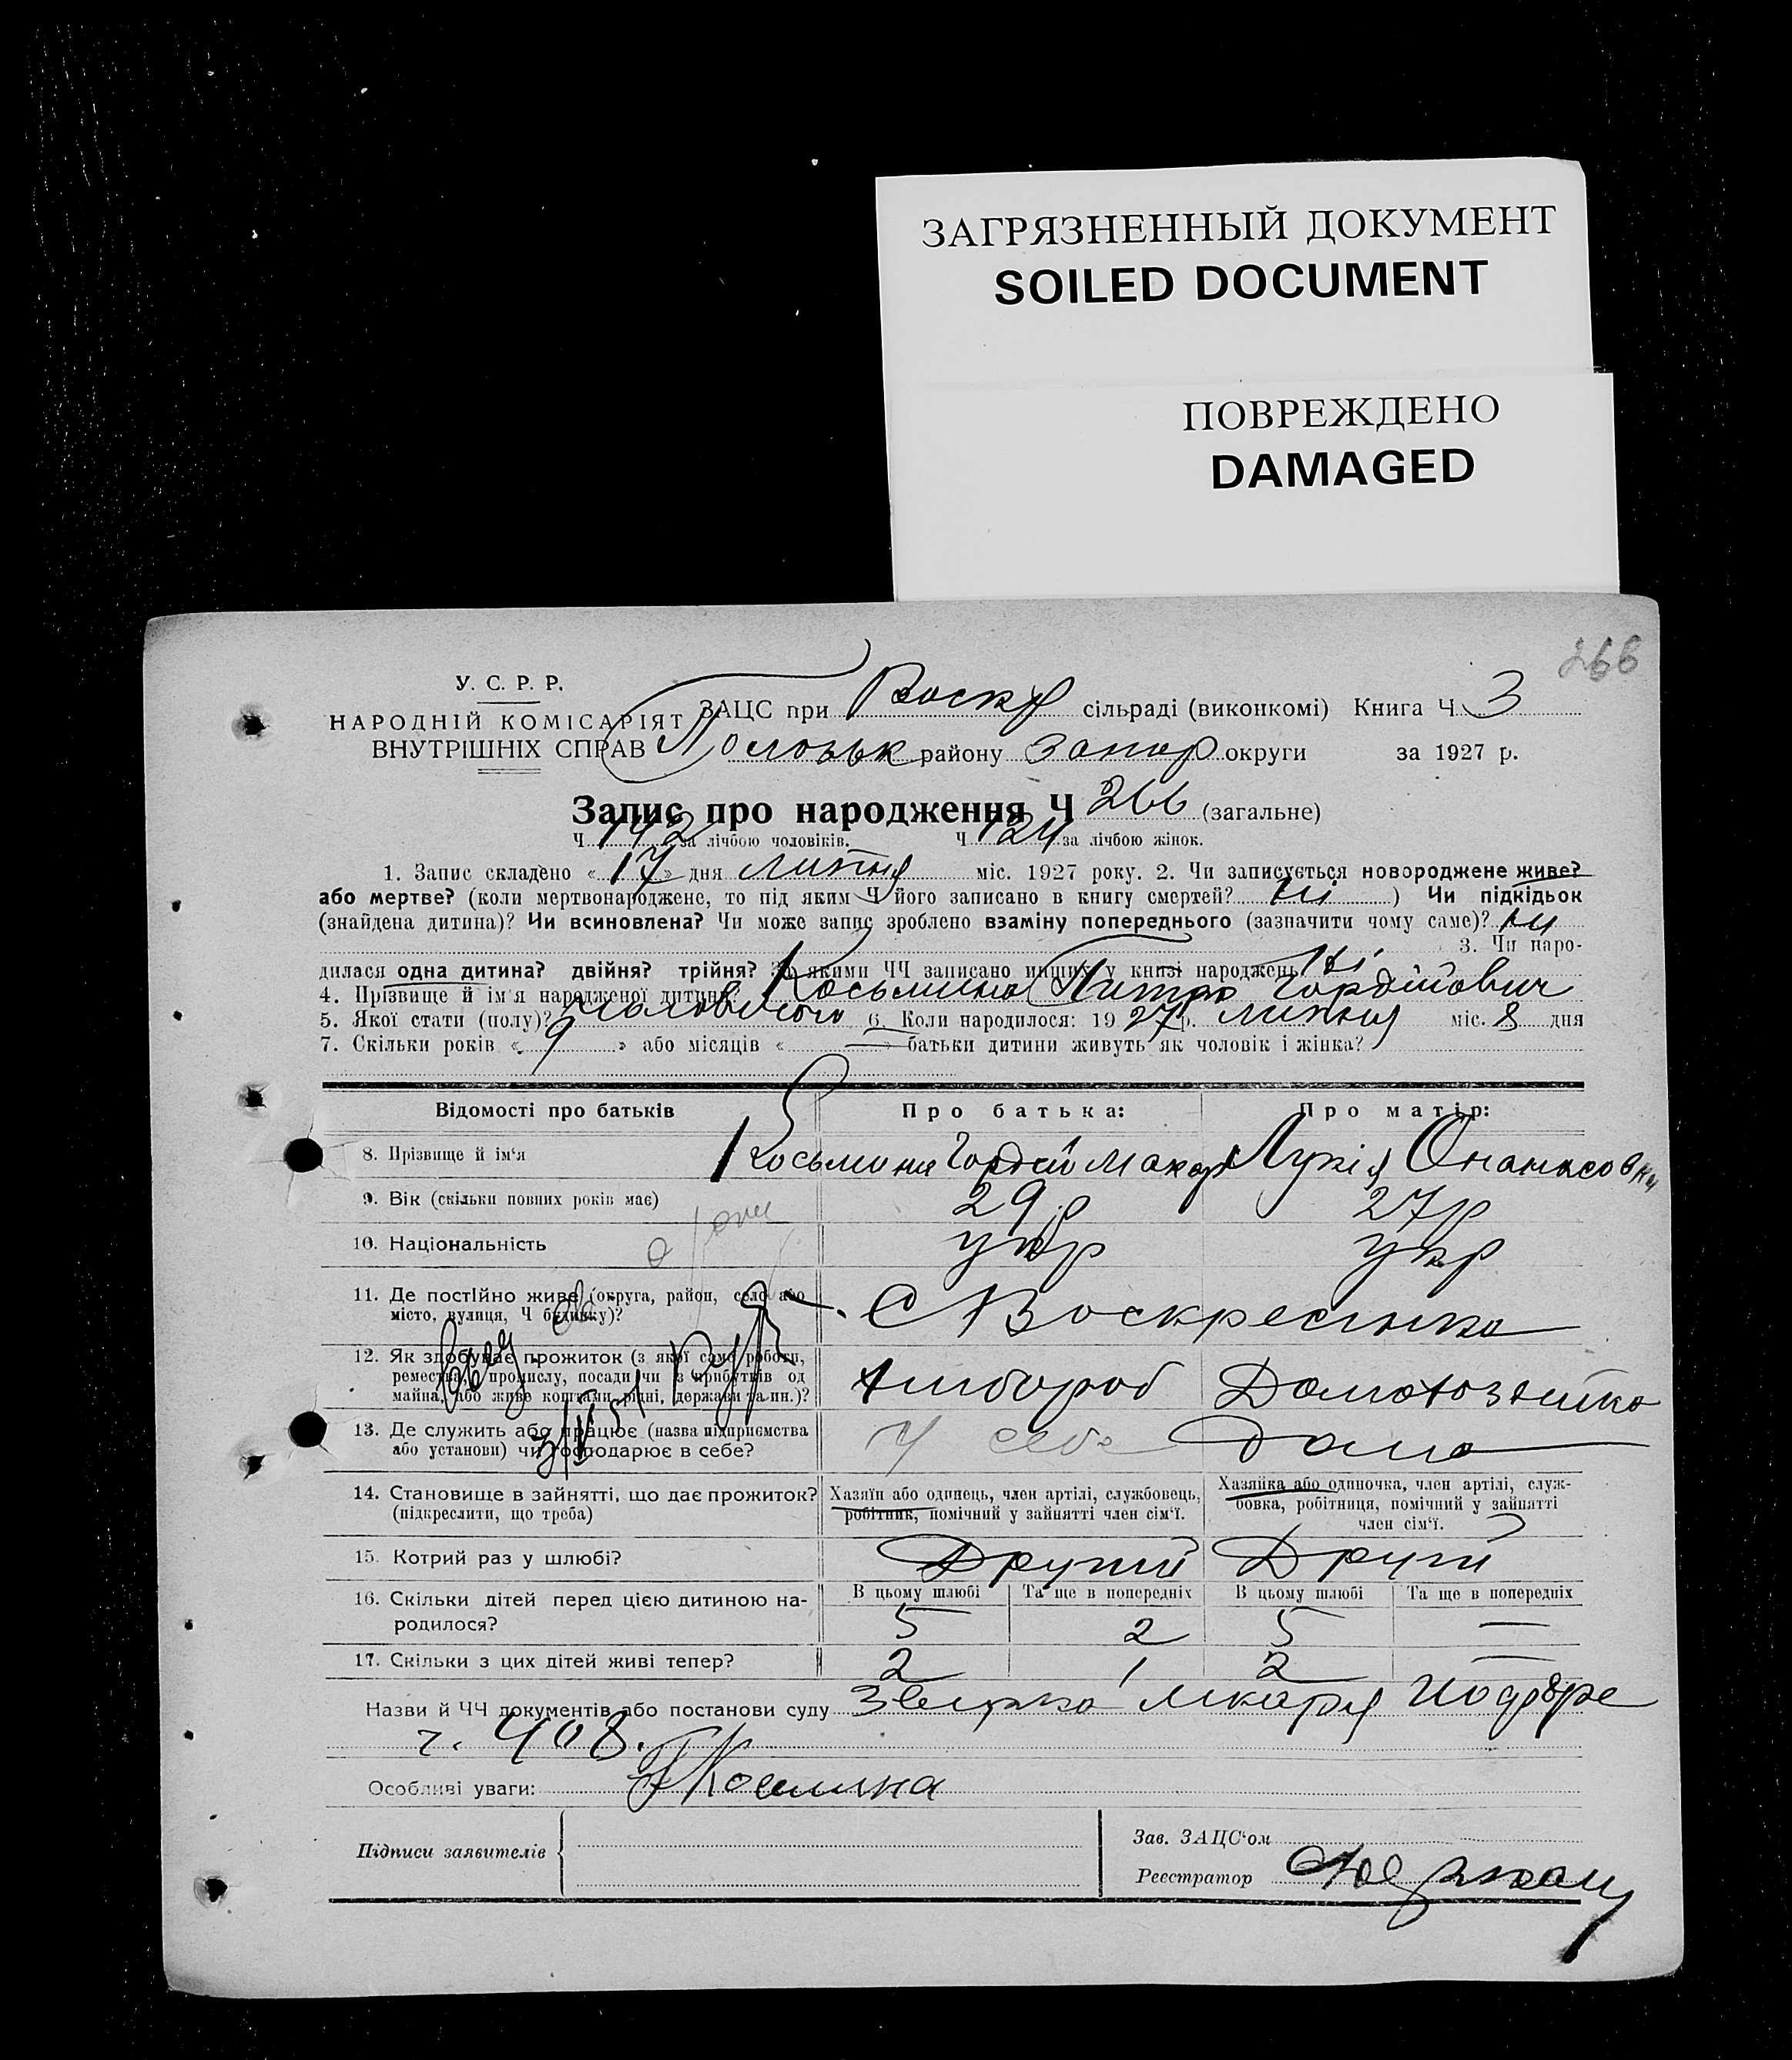 ЗАГРЯЗНЕННЫЙ ДОКУМЕНТ
SOILED DOCUMENT
ПОВРЕЖДЕНО
DAMAGED
266
У. С. Р. Р.
НАРОДНІЙ КОМІСАРІЯТ
ВНУТРІШНІХ СПРАВ
ЗАЦС при Воскр сільраді (виконкомі) Книга Ч 3
району Запор округи за 1927 р.
Запис про народження Ч 266 (загальне)
Ч 142 за лічбою чоловіків. Ч 124 за лічбою жінок.
1. Запис складено « 17 » дня липня міс. 1927 року. 2. Чи записується новороджене живе?
або мертве? (коли мертвонароджене, то під яким Ч його записано в книгу смертей? ні ) Чи підкідьок
(знайдена дитина)? Чи всиновлена? Чи може запис зроблено взаміну попереднього (зазначити чому саме)? ні
3. Чи наро-
дилася одна дитина? двійня? трійня? За якими ЧЧ записано инших у книзі народжень ні
4. Прізвище й ім'я народженої дитини? Косьмина Питро Гордійович
5. Якої стати (полу)? чоловічого 6. Коли народилося: 1927 р. липня міс. 8 дня
7. Скільки років « 9 » або місяців « — » батьки дитини живуть як чоловік і жінка?
Відомості про батьків Про батька: Про матір:
8. Прізвище й ім'я Косьмина Гордій Макар Лукія Опанасовна
9. Вік (скільки повних років має) 29 р 27 р
10. Національність укр укр
11. Де постійно живе (округа, район, село або
місто, вулиця, Ч будинку)? С Воскресенка
12. Як здобуває прожиток (з якої саме роботи,
ремества, промислу, посади чи з прибутків од
майна, або живе коштами рідні, держави та ин.)? хлібороб Домохозяйка
13. Де служить або працює (назва підприємства
або установи) чи господарює в себе? У себе Дома
14. Становище в зайнятті, що дає прожиток?
(підкреслити, що треба)
Хазяїн або одинець, член артілі, службовець,
робітник, помічний у зайнятті член сім'ї.
Хазяйка або одиночка, член артілі, служ-
бовка, робітниця, помічний у зайнятті
член сім'ї.
15. Котрий раз у шлюбі? Другий Други
В цьому шлюбі Та ще в попередніх В цьому шлюбі Та ще в попередніх
16. Скільки дітей перед цією дитиною на-
родилося? 5 2 5 —
17. Скільки з цих дітей живі тепер? 2 1 2 —
Назви й ЧЧ документів або постанови суду лікаря
ч. 408.
Особливі уваги: Космина
Підписи заявителів
Зав. ЗАЦС'ом
Реєстратор